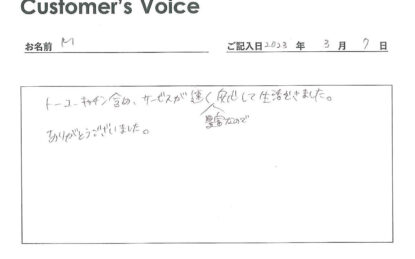 Customer's Voice
お名前 M ご記入日 2023 年 3 月 7 日
トーコーキッチン含め、サービスが速く安心して生活できました。
豊富なので
ありがとうございました。